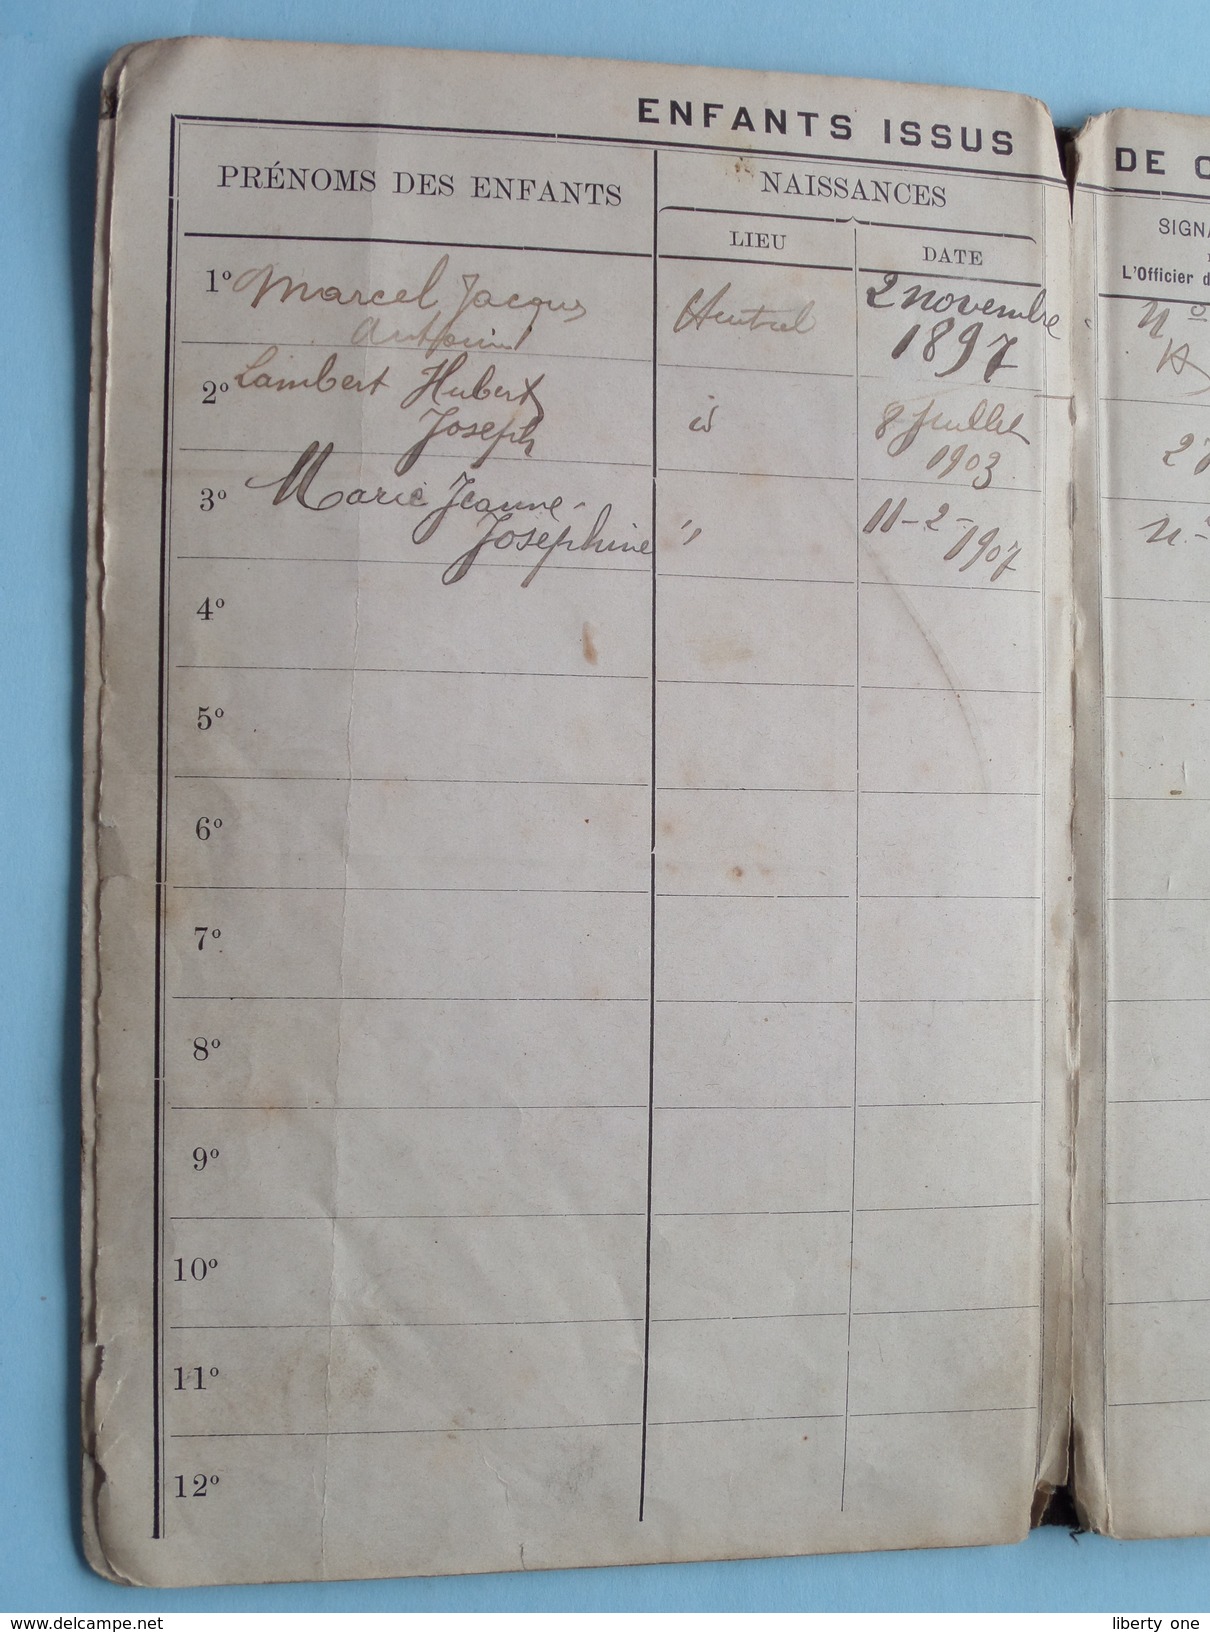 ENFANTS ISSUS
DE
PRÉNOMS DES ENFANTS
NAISSANCES
LIEU
DATE
SIGNA
L'Officier d
1º Marcel Jacques
2 novembre
1897
2º Lambert Hubert
Joseph
id
8 Juillet
1903
3º Marie Jeanne-
Joséphine
"
11-2-
1907
4º
5º
6º
7º
8º
9º
10º
11º
12º
www.delcampe.net
liberty one